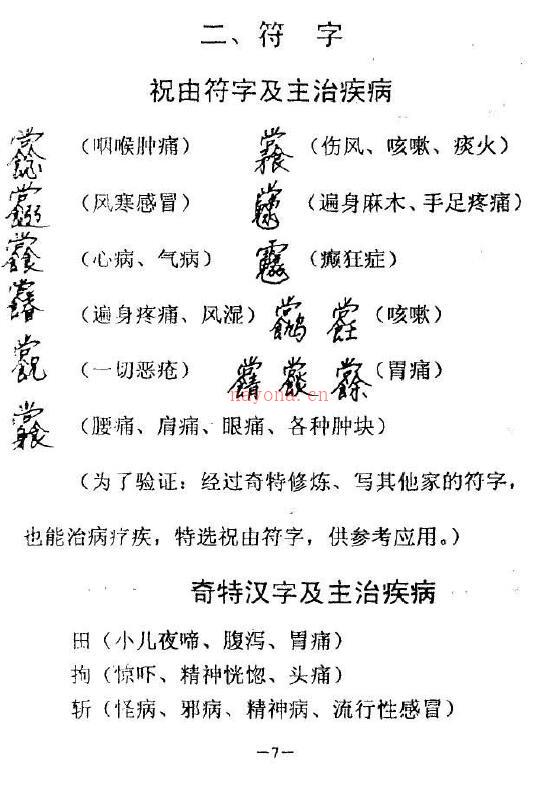 二、符 字
祝由符字及主治疾病
（咽喉肿痛） （伤风、咳嗽、痰火）
（风寒感冒） （遍身麻木、手足疼痛）
（心病、气病） （癫狂症）
（遍身疼痛、风湿） （咳嗽）
（一切恶疮） （胃痛）
nayona.cn
（腰痛、肩痛、眼痛、各种肿块）
（为了验证：经过奇特修炼、写其他家的符字，
也能治病疗疾，特选祝由符字，供参考应用。）
奇特汉字及主治疾病
田（小儿夜啼、腹泻、胃痛）
拘（惊吓、精神恍惚、头痛）
斩（怪病、邪病、精神病、流行性感冒）
—7—